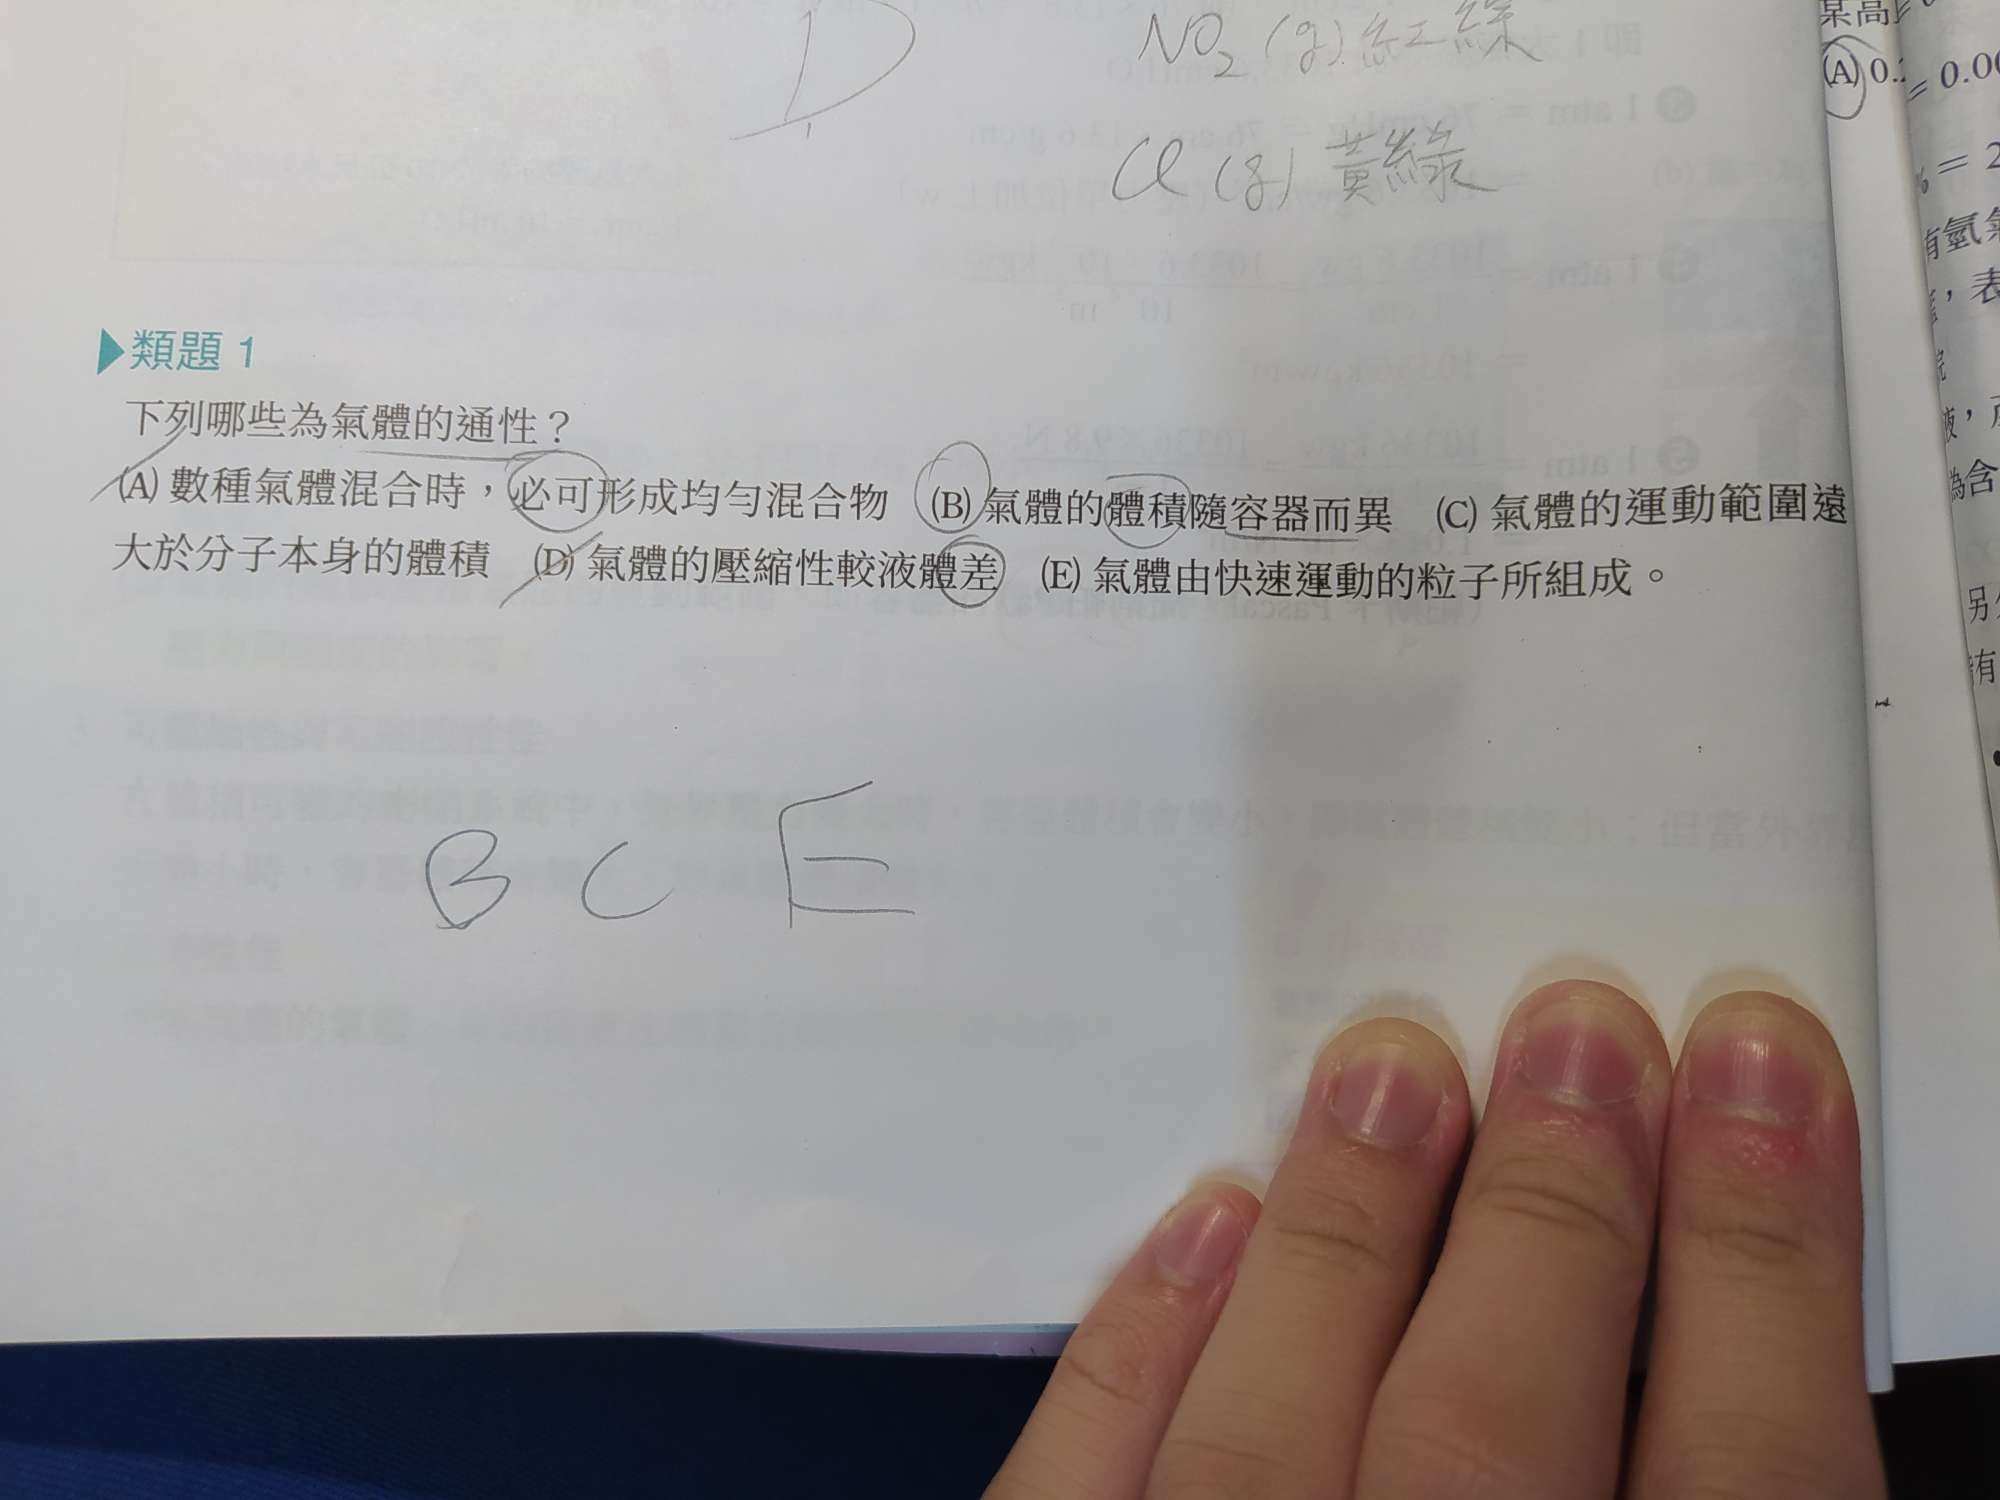 D
NO₂ (g) 紅綠
Cl (g) 黃綠
某高
(A) 0.2
= 0.00
% = 2
有氫氣
，表
液，
為含
另外
有
類題 1
下列哪些為氣體的通性？
(A) 數種氣體混合時，必可形成均勻混合物 (B) 氣體的體積隨容器而異 (C) 氣體的運動範圍遠
大於分子本身的體積 (D) 氣體的壓縮性較液體差 (E) 氣體由快速運動的粒子所組成。
B C E